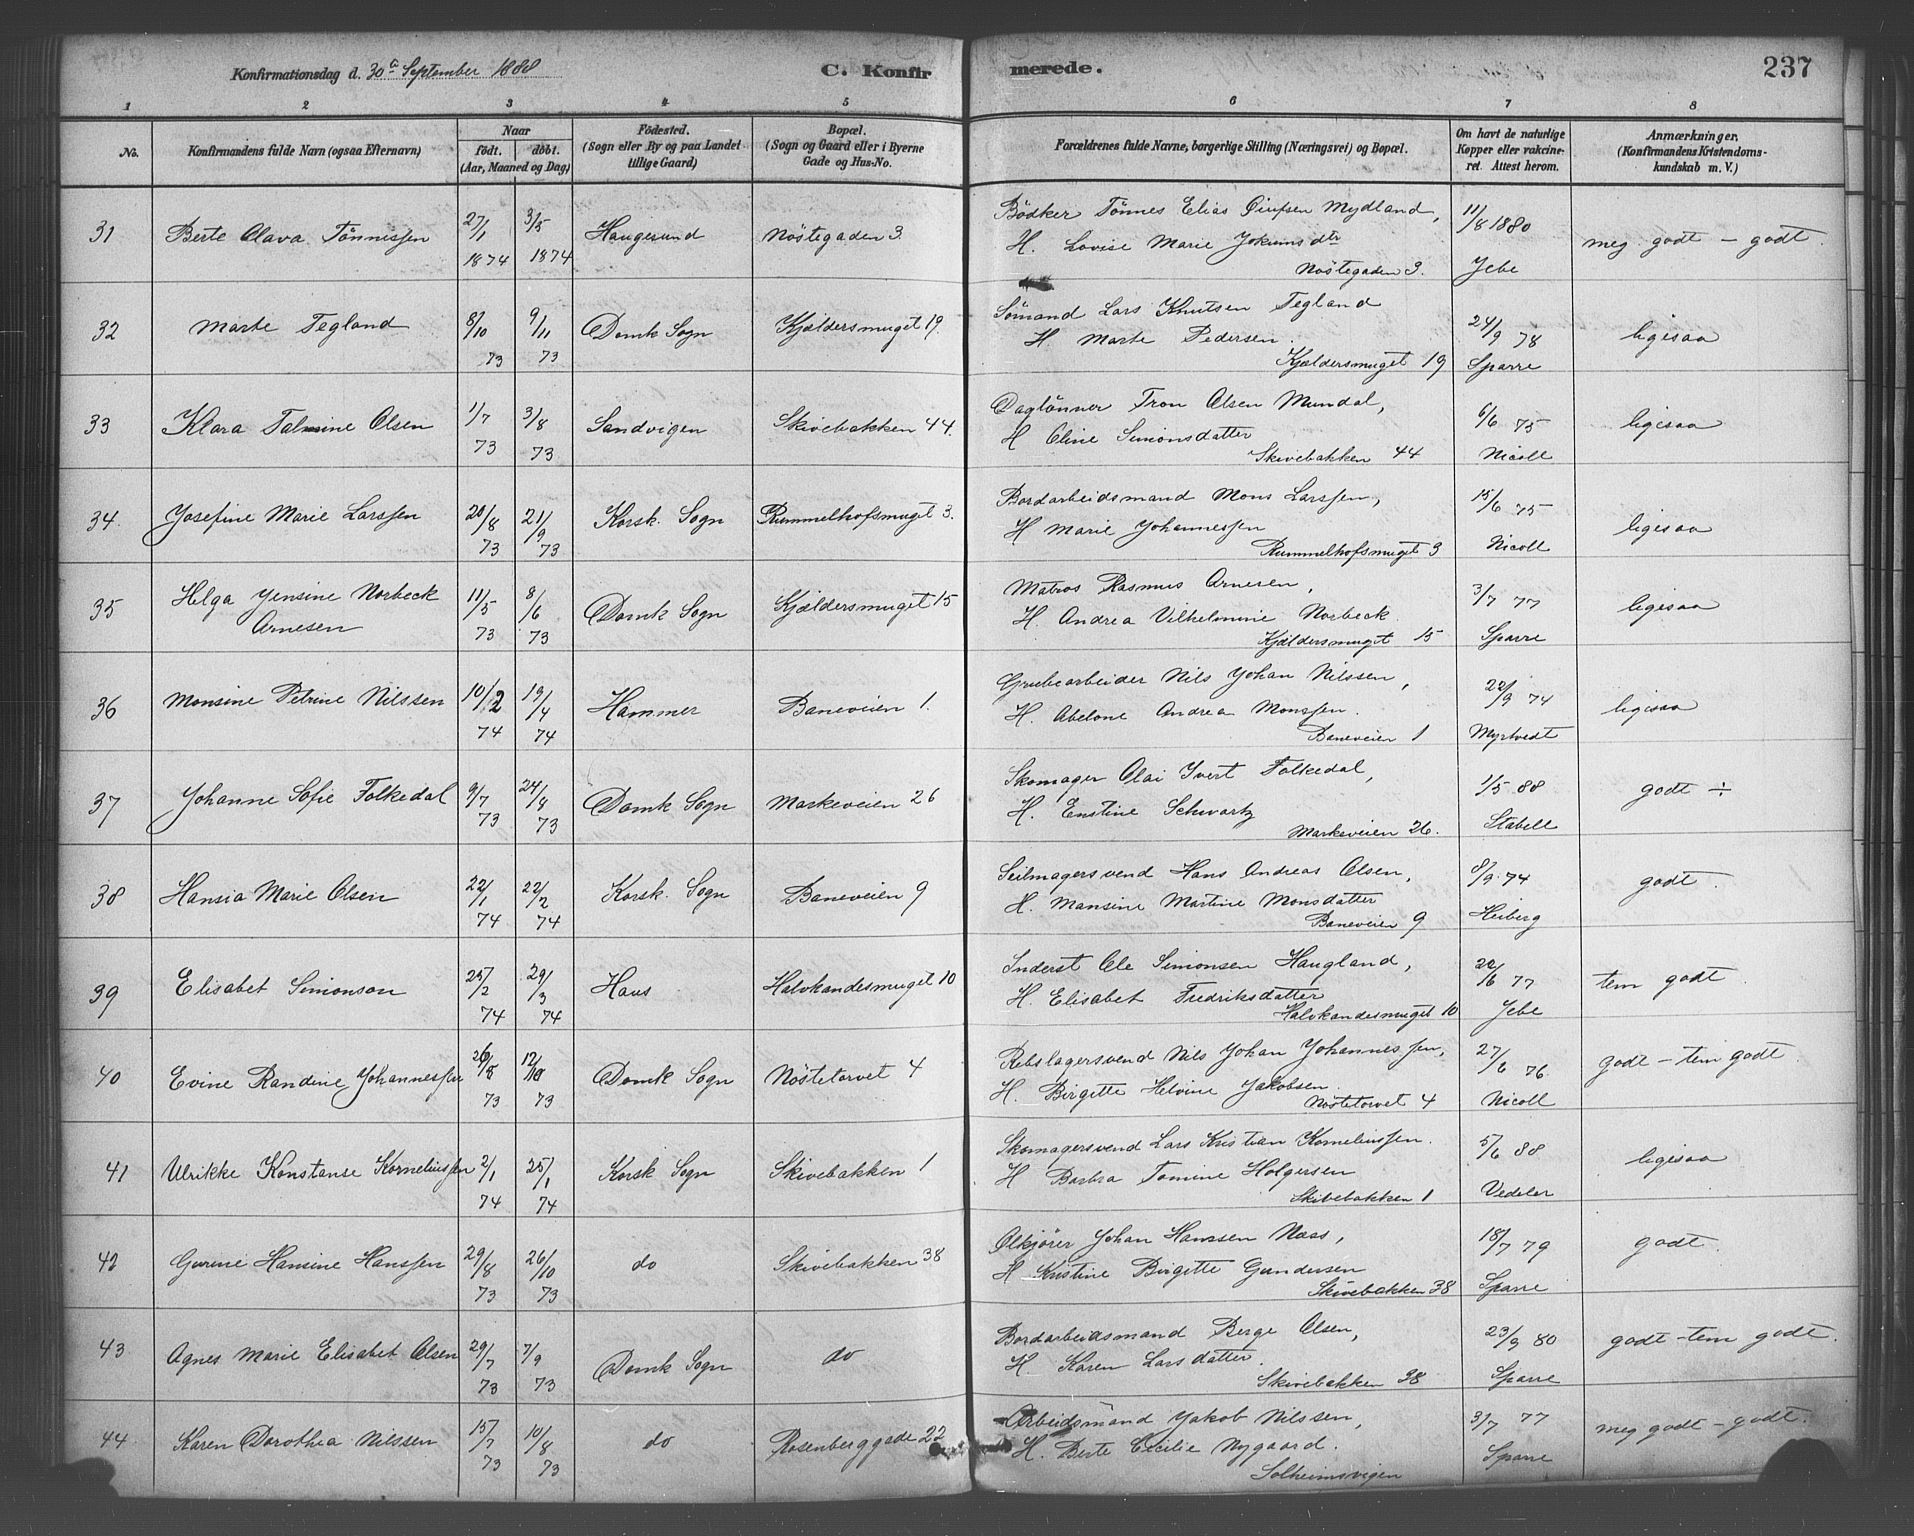 Konfirmationsdag d. 30te September 1888
C. Konfirmerede.
237
1 2 3 4 5 6 7 8
No.
Konfirmandens fulde Navn (ogsaa Efternavn)
Naar
født. døbt.
(Aar, Maaned og Dag)
Fødested.
(Sogn eller By og paa Landet tillige Gaard)
Bopæl.
(Sogn og Gaard eller i Byerne Gade og Hus-No.
Forældrenes fulde Navne, borgerlige Stilling (Næringsvei) og Bopæl.
Om havt de naturlige Kopper eller vakcineret. Attest herom.
Anmærkninger.
(Konfirmandens Kristendomskundskab m. V.)
31 Berte Olava Tönnessen 27/1 1874 3/5 1874 Haugesund Nöstegaden 3.
Bödker Tönnes Elias Mydland,
H. Lovise Marie Jokumsdtr
Nöstegaden 3.
11/8 1880 Jebe
meg. godt - godt.
32 Marte Tegland 8/10 73 9/11 73 Domk Sogn Kjældersmuget 19.
Sömand Lars Knutsen Tegland
H. Marte Pedersen.
Kjældersmuget 19
24/9 78 Sparre
ligesaa
33 Klara Talmine Olsen 1/7 73 3/8 73 Sandvigen Skivebakken 44.
Daglönner Tron Olsen Mundal,
H Oline Simonsdatter
Skivebakken 44
6/6 75 Nicoll
ligesaa
34. Josefine Marie Larssen 20/8 73 21/9 73 Korsk. Sogn Rummelhofsmuget 3.
Bordarbeidsmand Mons Larssen,
H Marie Johannessen
Rummelhofsmuget 3
15/6 75 Nicoll
ligesaa
35 Helga Jensine Norbeck
Arnesen 11/5 73 8/6 73 Domk Sogn Kjældersmuget 15
Matros Rasmus Arnesen,
H. Andrea Vilhelmine Norbeck
Kjældersmuget 15
3/7 77 Sparre
ligesaa
36 Monsine Petrine Nilssen 10/2 74 19/4 74 Hammer Baneveien 1.
Grubearbeider Nils Johan Nilssen,
H. Abelone Andrea Monssen.
Baneveien 1
22/9 74 Myrtvedt
ligesaa
37 Johanne Sofie Folkedal 9/7 73 24/8 73 Domk Sogn Markeveien 26
Skomager Olai Ivert Folkedal,
H. Enstine Schwartz
Markeveien 26.
1/5 88 Stabell
godt ÷
38 Hansia Marie Olsen 22/1 74 22/2 74 Korsk. Sogn Baneveien 9
Seilmagersvend Hans Andreas Olsen,
H. Mansine Martine Monsdatter
Baneveien 9
8/9 74 Heiberg
godt.
39 Elisabet Simonson 25/2 74 29/3 74 Haus Halvkandesmuget 10
Inderst Ole Simonsen Haugland,
H. Elisabet Fredriksdatter
Halvkandesmuget 10
22/6 77 Jebe
tem godt.
40 Evine Randine Johannessen 26/8 73 12/10 73 Domk Sogn Nöstetorvet 4
Rebslagersvend Nils Johan Johannessen,
H. Birgitte Helvine Jakobsen.
Nöstetorvet 4
27/6 76. Nicoll
godt - tem godt.
41 Ulrikke Konstanse Kornelinssen 2/1 74 25/1 74 Korsk Sogn Skivebakken 1
Skomagersvend Lars Kristian Kornelinssen.
H Barbra Tomine Holgersen
Skivebakken 1
5/6 88 Vedeler
ligesaa
42 Gurine Hansine Hanssen 29/8 73 26/10 73 do Skivebakken 38
Ölkjörer Johan Hanssen Naes,
H Kristine Birgitte Gundersen
Skivebakken 38
18/7 79 Sparre
godt.
43 Agnes Marie Elisabet Olsen 29/7 73 7/9 73 Domk Sogn do
Bordarbeidsmand Berge Olsen,
H Karen Larsdatter.
Skivebakken 38
23/9 80 Sparre
godt - tem godt.
44 Karen Dorothea Nilssen 15/7 73 10/8 73 do Rosenberggade 22
Arbeidsmand Jakob Nilssen,
H. Berte Cicilie Nygaard.
Solheimsvigen
3/7 77 Sparre
meg godt - godt.